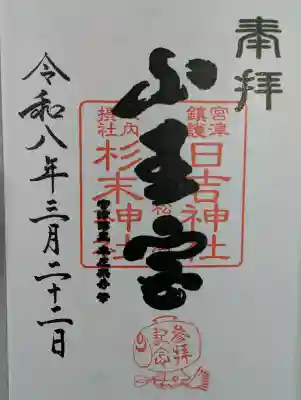 奉拝
山王宮
宮津
鎮護
日吉神社
境内
摂社
杉末神社
令和八年三月二十二日
参拝
記念